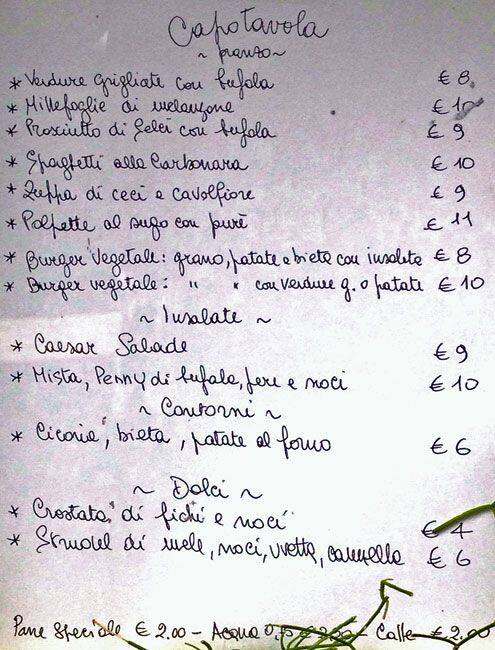 Capotavola
~ pranzo ~
* Verdure grigliate con bufala € 8
* Millefoglie di melanzane € 10
* Prosciutto di Gelci con bufala € 9
* Spaghetti alla Carbonara € 10
* Zuppa di ceci e cavolfiore € 9
* Polpette al sugo con purè € 11
* Burger vegetale: grano, patate e bieta con insalata € 8
* Burger vegetale: " " con verdure g. o patate € 10
~ Insalate ~
* Caesar Salade € 9
* Mista, Penny di bufala, pere e noci € 10
~ Contorni ~
* Cicoria, bieta, patate al forno € 6
~ Dolci ~
* Crostata di fichi e noci € 4
* Strudel di mele, noci, uvetta, cannella € 6
Pane Speciale € 2.00 - Acqua 0,75 € 2.00 - Caffe € 2.00